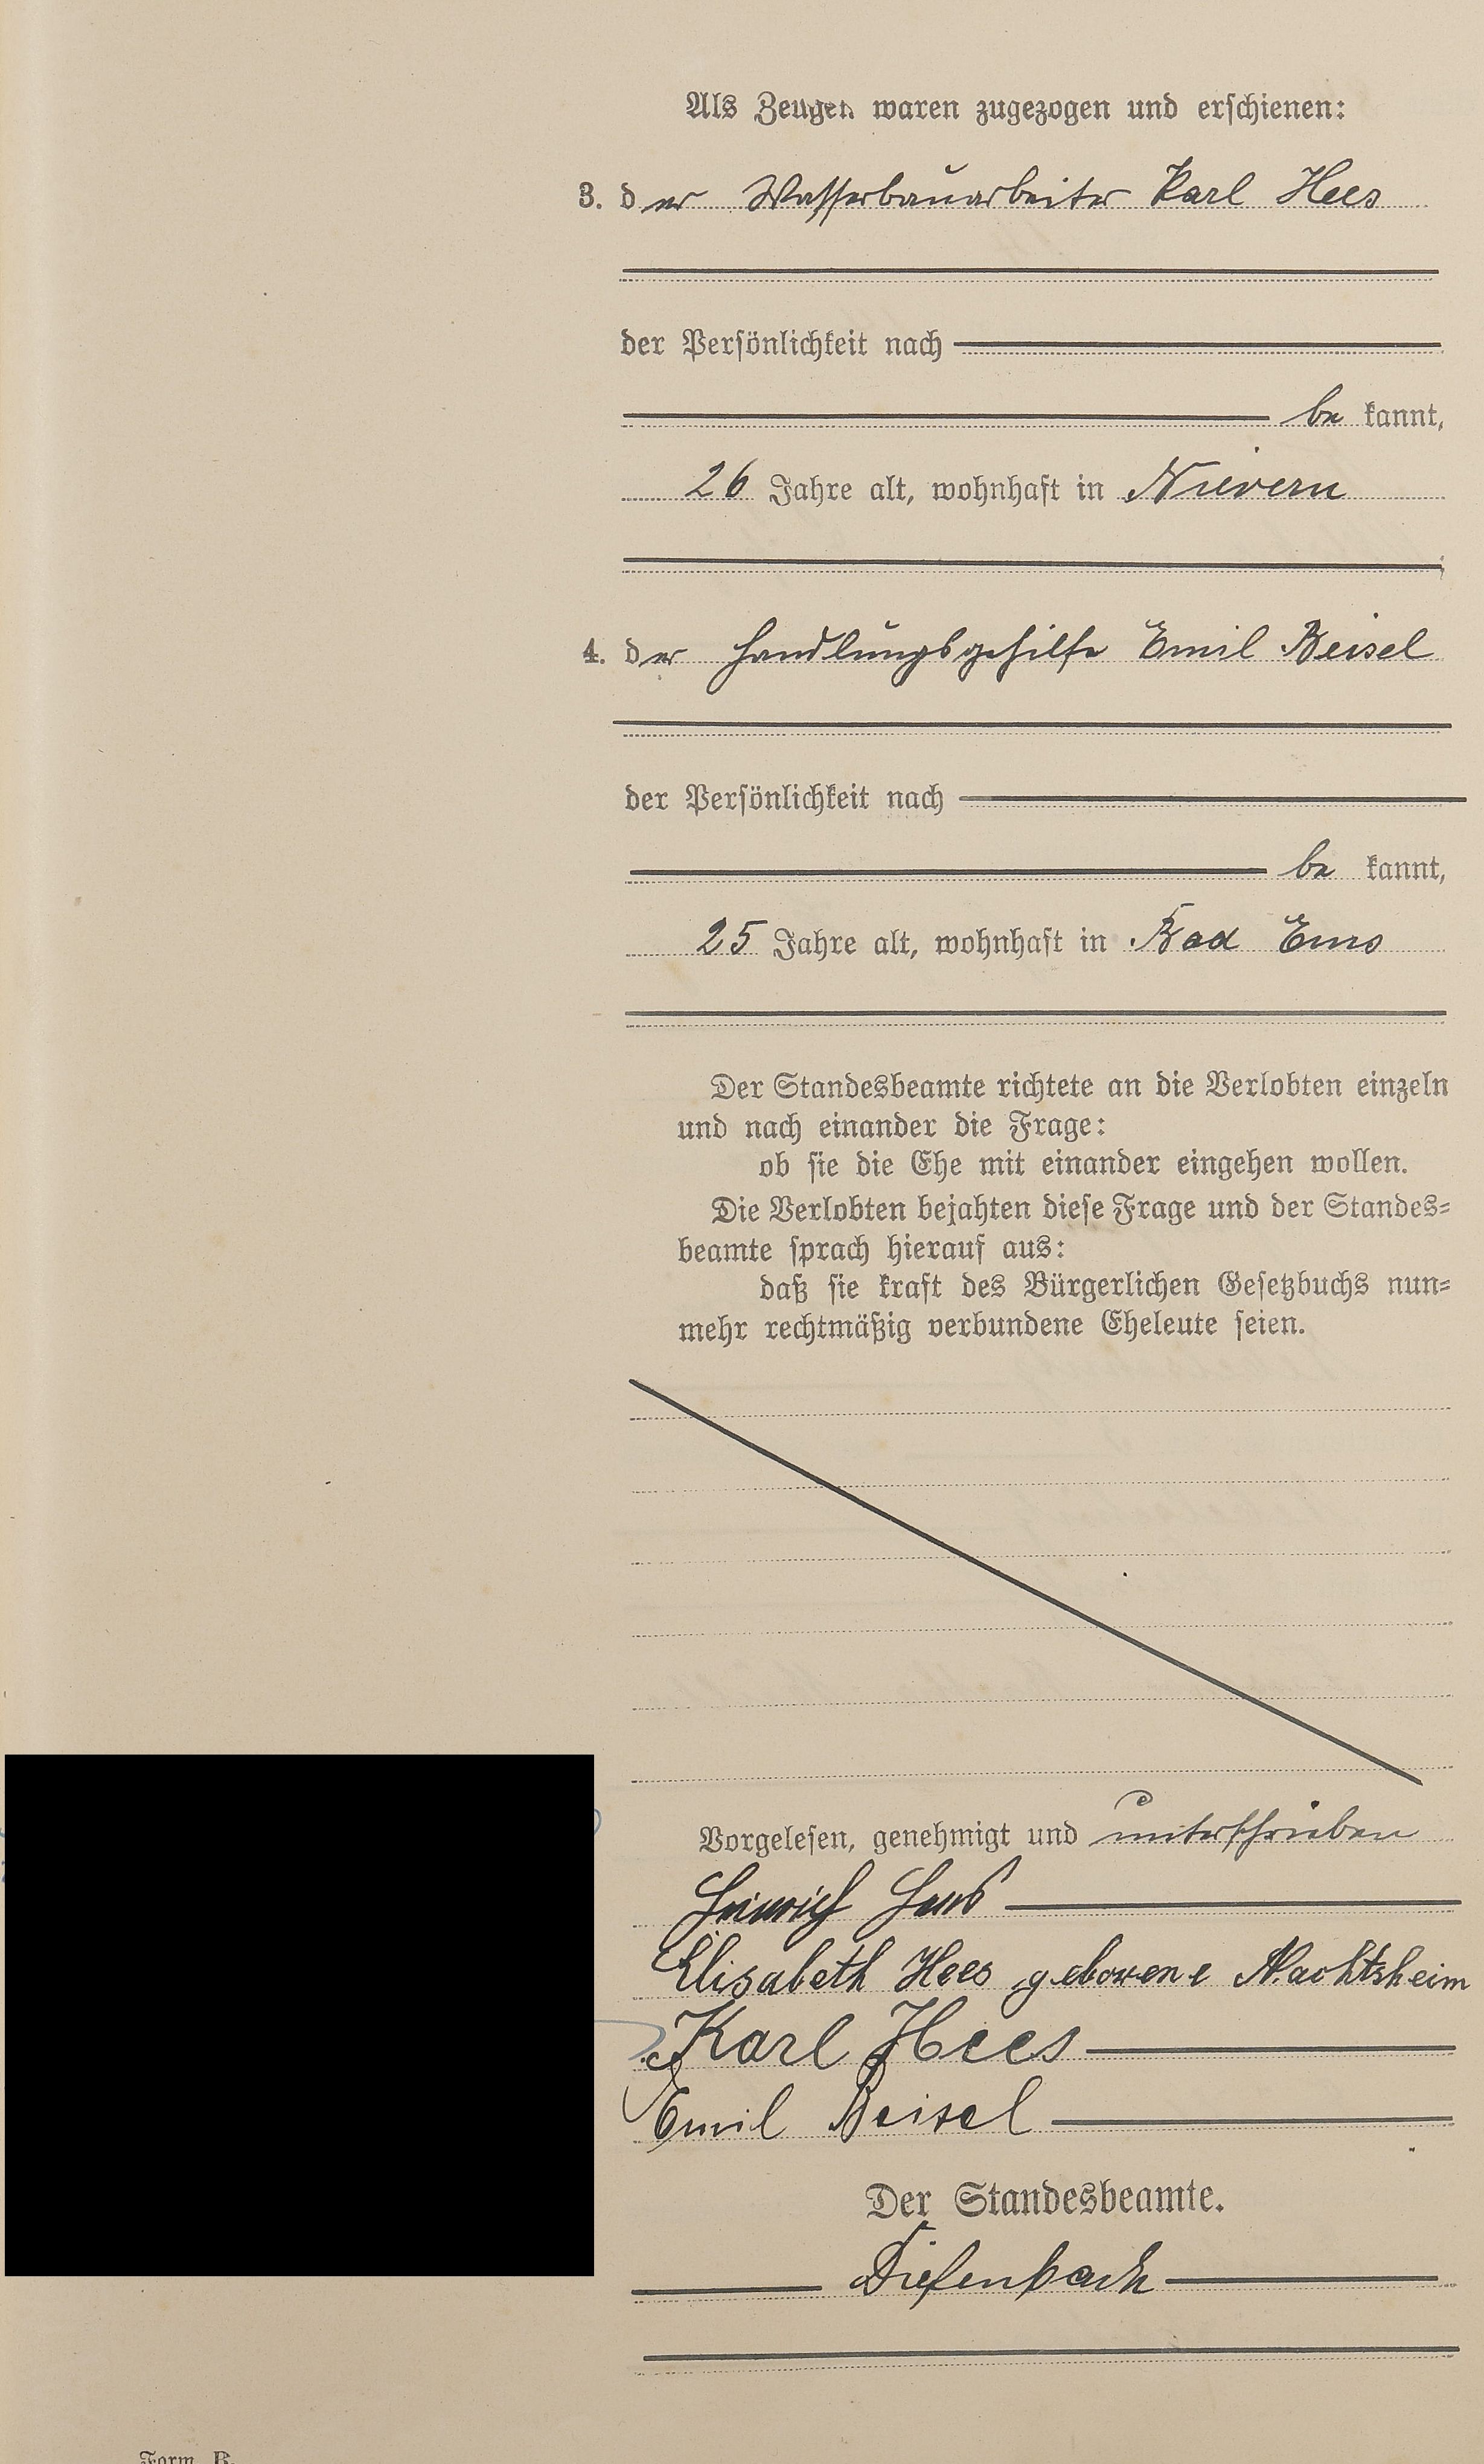 Als Zeugen waren zugezogen und erschienen:
3. der Wasserbauarbeiter Karl Hees
der Persönlichkeit nach
be kannt,
26 Jahre alt, wohnhaft in Nievern
4. der Handlungsgehilfe Emil Beisel
der Persönlichkeit nach
be kannt,
25 Jahre alt, wohnhaft in Bad Ems
Der Standesbeamte richtete an die Verlobten einzeln
und nach einander die Frage:
ob sie die Ehe mit einander eingehen wollen.
Die Verlobten bejahten diese Frage und der Standes-
beamte sprach hierauf aus:
daß sie kraft des Bürgerlichen Gesetzbuchs nun-
mehr rechtmäßig verbundene Eheleute seien.
Vorgelesen, genehmigt und unterschrieben
Heinrich Hees
Elisabeth Hees geborene Nachtsheim
Karl Hees
Emil Beisel
Der Standesbeamte.
Diefenbach
Form B.